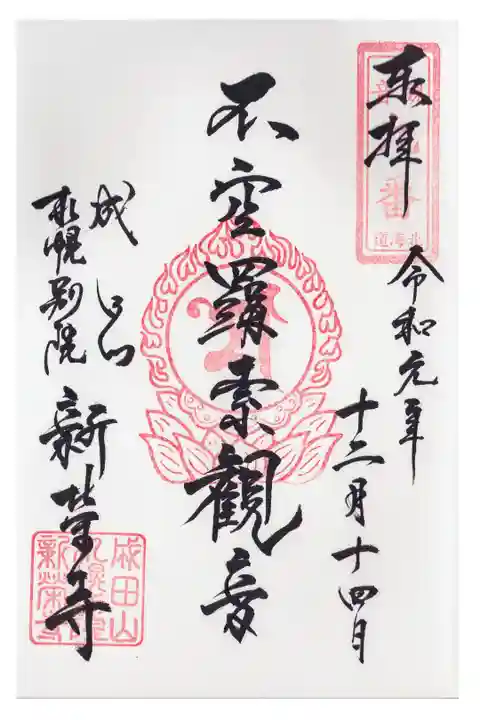 奉拝
令和元年
十二月十四日
不空羂索觀音
成田山
札幌別院
新栄寺
番
北海道
成田山
札幌別院
新榮寺